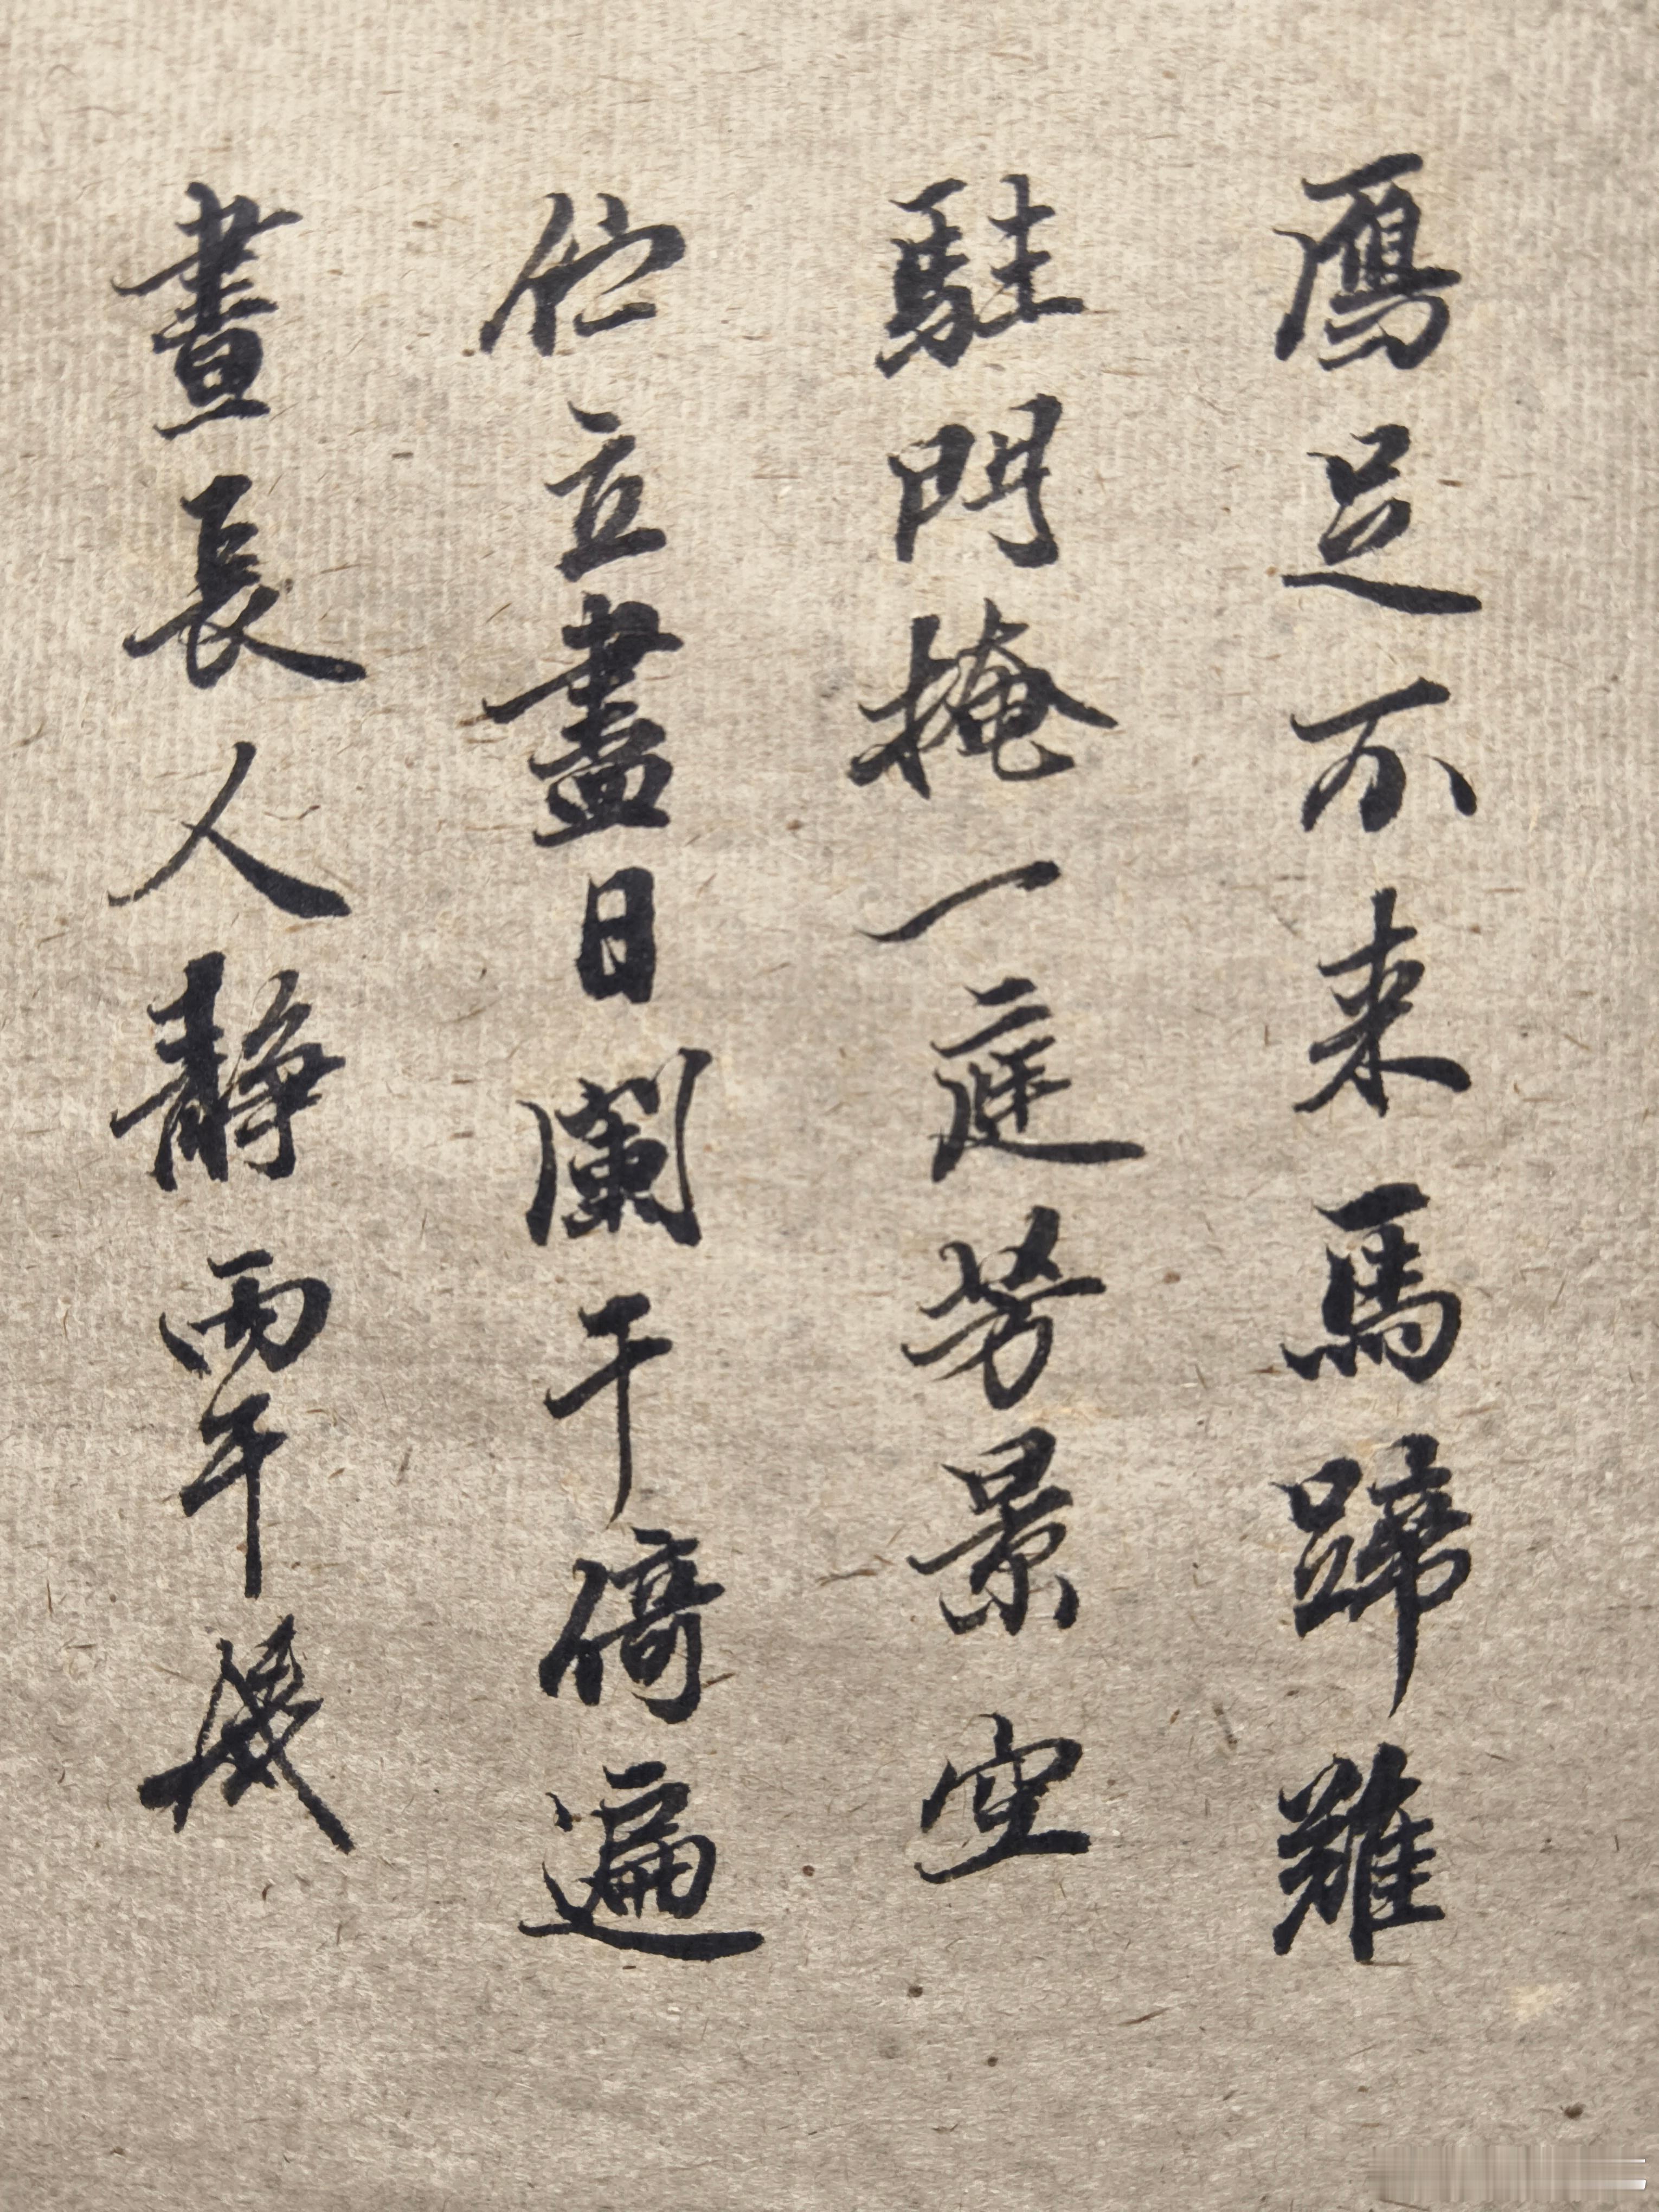 鴈足不来馬蹄難
駐門掩一庭芳景空
佇立盡日闌干倚遍
晝長人静丙午